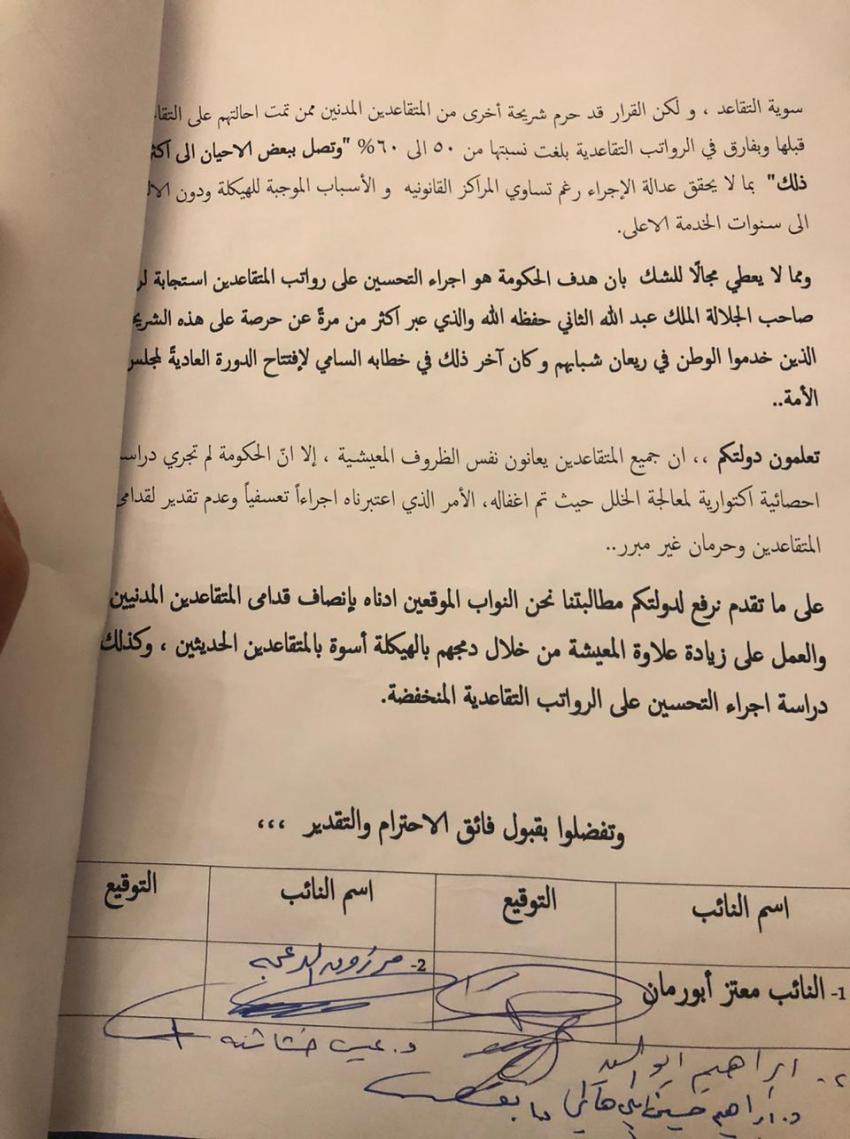 سوية التقاعد ، و لكن القرار قد حرم شريحة أخرى من المتقاعدين المدنين ممن تمت احالتهم على
قبلها وبفارق في الرواتب التقاعدية بلغت نسبتها من ٥٠ الى ٦٠% "وتصل ببعض الاحيان الى
ذلك" بما لا يحقق عدالة الإجراء رغم تساوي المراكز القانونيه و الأسباب الموجبة للهيكلة ودون
الى سنوات الخدمة الاعلى.
ومما لا يعطي مجالًا للشك بان هدف الحكومة هو اجراء التحسين على رواتب المتقاعدين استجابة
صاحب الجلالة الملك عبد الله الثاني حفظه الله والذي عبر اكثر من مرةً عن حرصة على هذه
الذين خدموا الوطن في ريعان شبابهم و كان آخر ذلك في خطابه السامي لإفتتاح الدورة العاديةً لمجلس
الأمة..
تعلمون دولتكم ،، ان جميع المتقاعدين يعانون نفس الظروف المعيشية ، إلا انّ الحكومة لم تجري
احصائية اكتوارية لمعالجة الخلل حيث تم اغفاله، الأمر الذي اعتبرناه اجراءاً تعسفياً وعدم تقدير لقدامى
المتقاعدين وحرمان غير مبرر..
على ما تقدم نرفع لدولتكم مطالبتنا نحن النواب الموقعين ادناه بإنصاف قدامى المتقاعدين المدنيين
والعمل على زيادة علاوة المعيشة من خلال دمجهم بالهيكلة أسوة بالمتقاعدين الحديثين ، وكذلك
دراسة اجراء التحسين على الرواتب التقاعدية المنخفضة.
وتفضلوا بقبول فائق الاحترام والتقدير ،،،
اسم النائب التوقيع اسم النائب التوقيع
1- النائب معتز أبورمان 2- مرزوق الدعجه
ابراهيم ابو السيد
د. ابراهيم